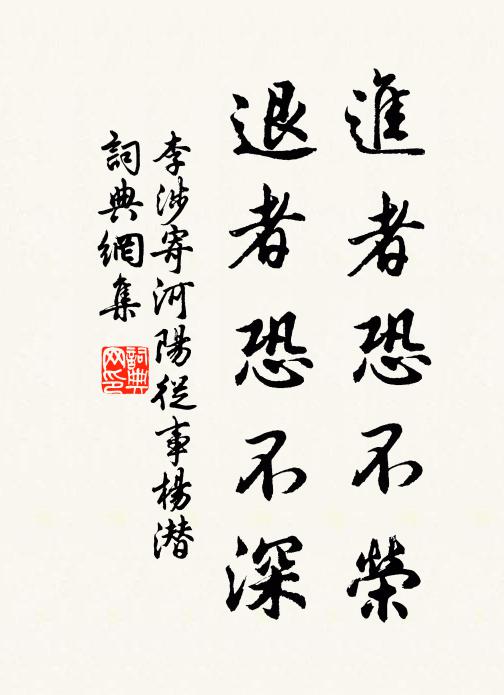 進者恐不榮
退者恐不深
李涉寄河陽從事楊潜
詞典網集
詞典
网印